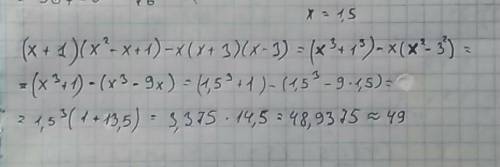 x = 1,5
(x+1)(x²-x+1)-x(x+3)(x-3) = (x³+1³)-x(x²-3²) =
=(x³+1)-(x³-9x) = (1,5³+1)-(1,5³-9·1,5) =
= 1,5³(1+13,5) = 3,375·14,5 = 48,9375 ≈ 49